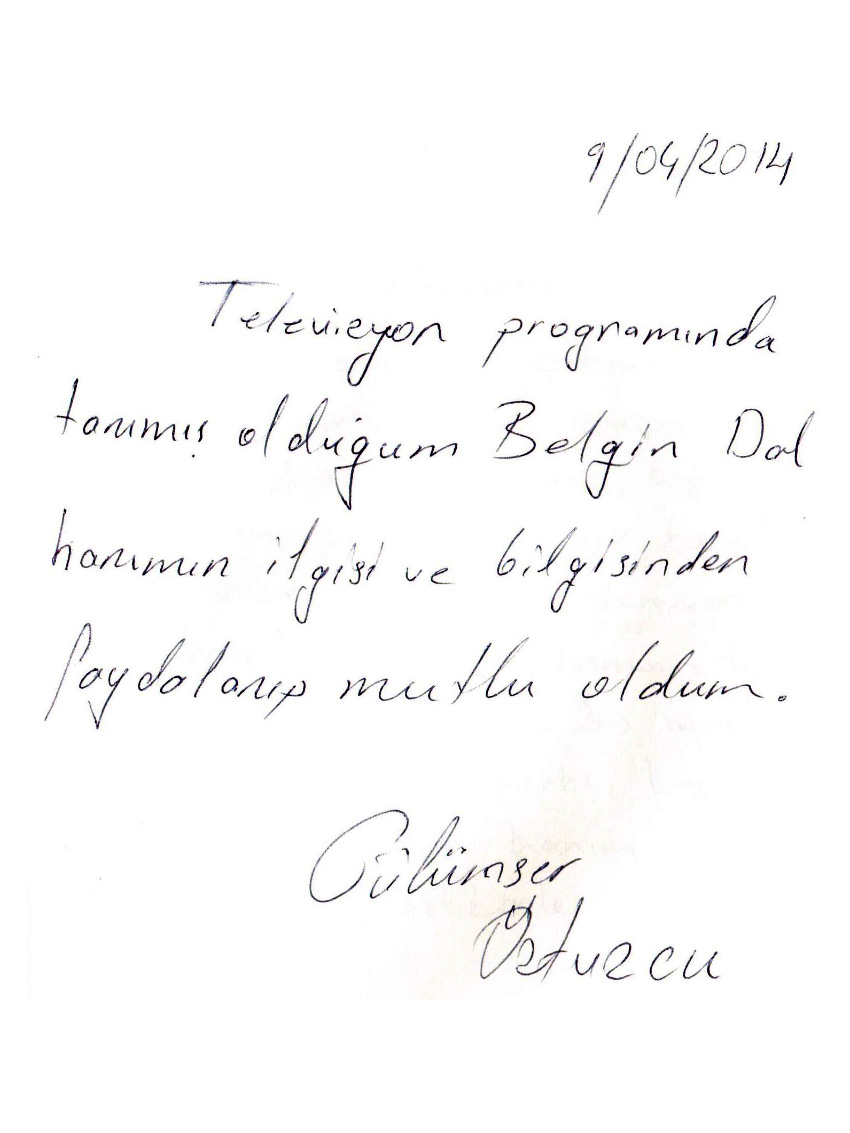 9/04/2014
Televizyon programında
tanımış olduğum Belgin Dal
hanımın ilgisi ve bilgisinden
faydalanıp mutlu oldum.
Gülümser
Öztuzcu